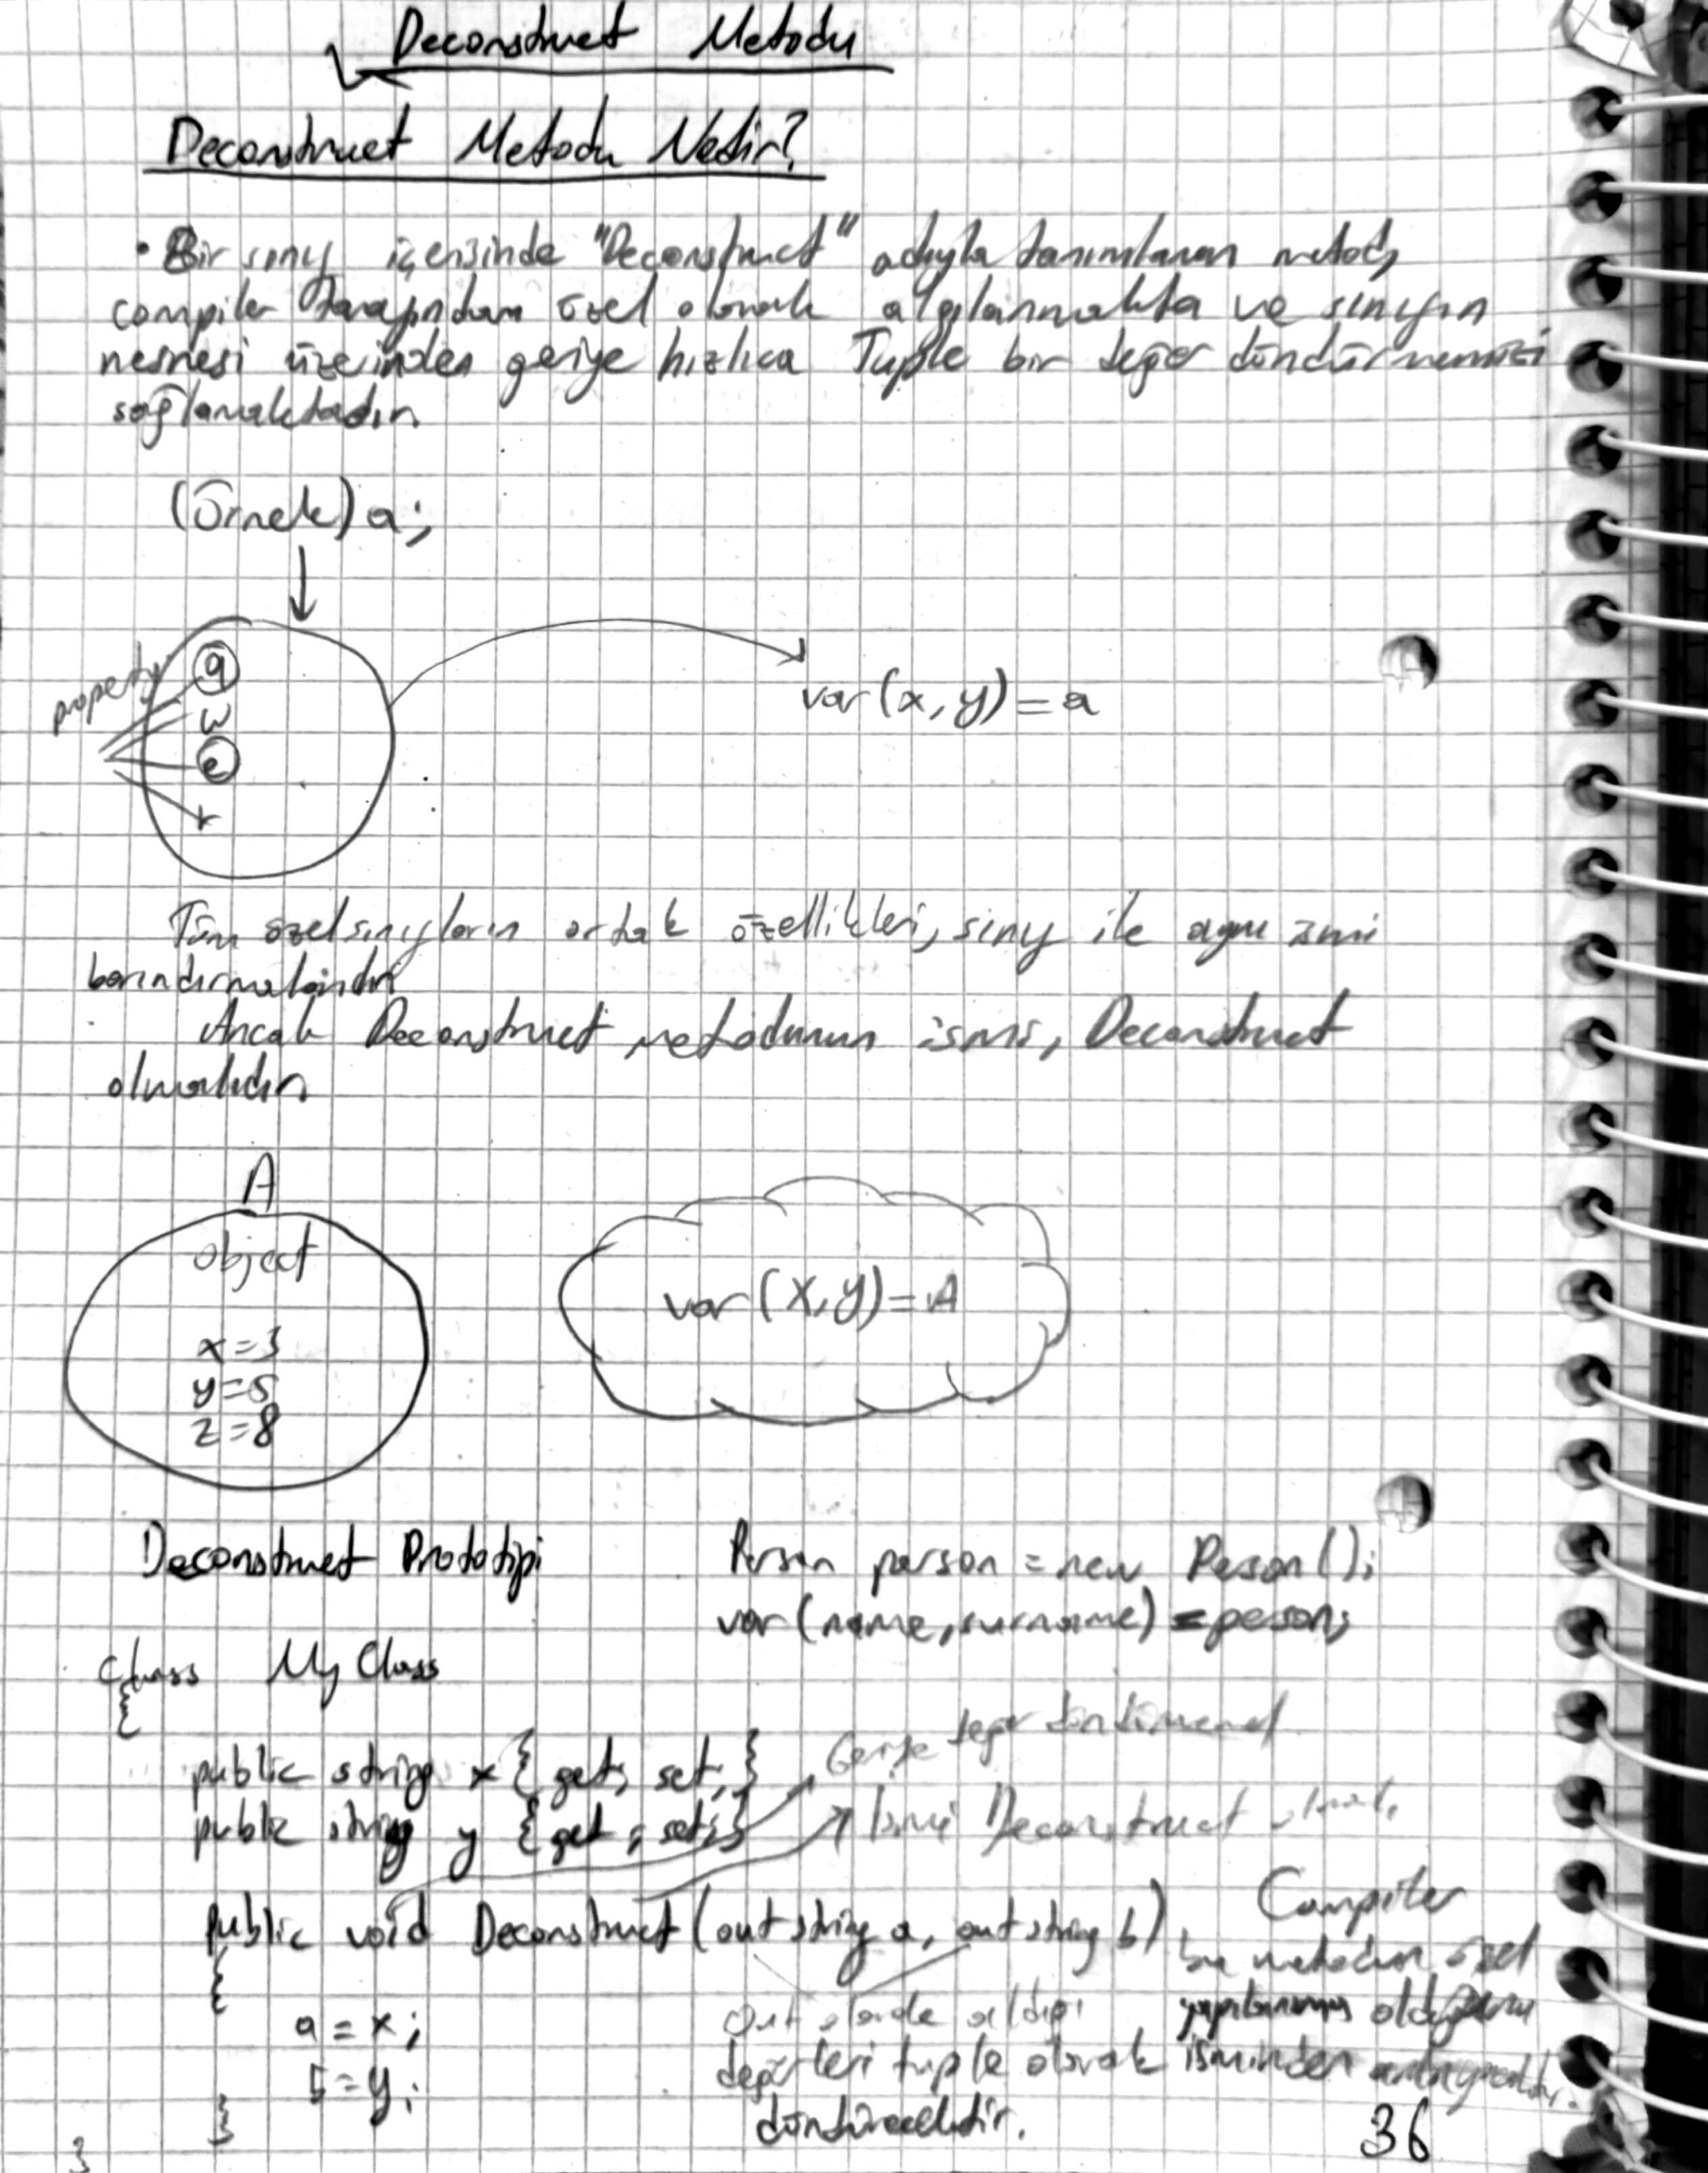 Deconstruct Metodu
Deconstruct Metodu Nedir?
• Bir sınıf içerisinde "Deconstruct" adıyla tanımlanan metod,
compiler tarafından özel olarak algılanmakta ve sınıfın
nesnesi üzerinden geriye hızlıca Tuple bir değer döndürmemizi
sağlamaktadır.
(Örnek) a;
property
q
w
e
r
var (x, y) = a
Tüm özel sınıfların ortak özellikleri, sınıf ile aynı ismi
barındırmalarıdır
Ancak Deconstruct metodunun ismi, Deconstruct
olmalıdır
A
object
x=3
y=5
z=8
var (x, y) = A
Deconstruct Prototipi
Person person = new Person();
var (name, surname) = person;
class MyClass
{
public string x { get; set; }
Geriye değer döndürmez!
public string y { get; set; }
İsmi Deconstruct olmalı
public void Deconstruct (out string a, out string b)
{
a = x;
b = y;
}
}
out olarak aldığı
değerleri tuple olarak
döndürecektir.
Compiler
bu metodun özel
yapılanma olduğunu
isminden anlayacaktır.
36